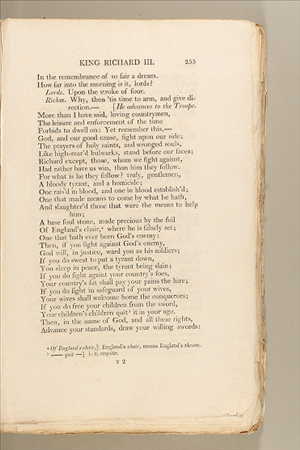 KING RICHARD III. 255
In the remembrance of so fair a dream.
How far into the morning is it, lords?
Lords. Upon the stroke of four.
Richm. Why, then 'tis time to arm, and give di-
rection.— [He advances to the Troops.
More than I have said, loving countrymen,
The leisure and enforcement of the time
Forbids to dwell on: Yet remember this,—
God, and our good cause, fight upon our side;
The prayers of holy saints, and wronged souls,
Like high-rear'd bulwarks, stand before our faces;
Richard except, those, whom we fight against,
Had rather have us win, than him they follow.
For what is he they follow? truly, gentlemen,
A bloody tyrant, and a homicide;
One rais'd in blood, and one in blood establish'd;
One that made means to come by what he hath,
And slaughter'd those that were the means to help
him;
A base foul stone, made precious by the foil
Of England's chair,⁴ where he is falsely set;
One that hath ever been God's enemy:
Then, if you fight against God's enemy,
God will, in justice, ward you as his soldiers;
If you do sweat to put a tyrant down,
You sleep in peace, the tyrant being slain;
If you do fight against your country's foes,
Your country's fat shall pay your pains the hire;
If you do fight in safeguard of your wives,
Your wives shall welcome home the conquerors;
If you do free your children from the sword,
Your children's children quit⁵ it in your age.
Then, in the name of God, and all these rights,
Advance your standards, draw your willing swords:
⁴ Of England's chair,] England's chair, means England's throne.
⁵ —— quit —] i. e. requite.
T 2